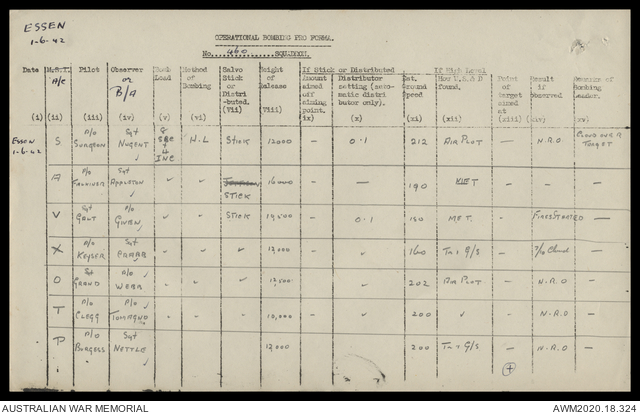 ESSEN
1-6-42
OPERATIONAL BOMBING PRO FORMA.
No. 460 SQUADRON.
Date M.& T. A/c Pilot Observer or B/A Bomb Load Method of Bombing Salvo Stick or Distributed. Height of Release If Stick or Distributed If High Level Point of target aimed at Result if observed
Amount aimed off aiming point. Distributor setting (automatic distributor only). Est. Ground Speed How U.S & D found.
(i) (ii) (iii) (iv) (v) (vi) (vii) (viii) ix) (x) (xi) (xii) (xiii) (xiv) xv)
Essen 1-6-42 S P/O SURGEON Sgt NUGENT 8 SBC + 4 INC H.L STICK 12000 — 0.1 212 AIR PLOT — N.R.O CLOUD OVER TARGET
A P/O FALKINER Sgt APPLETON ✓ ✓ ✓ STICK 16000 — ✓ 190 MET — —
V Sgt GALT P/O GIVEN ✓ ✓ ✓ STICK 14,500 — 0.1 180 MET. — FIRES STARTED —
X P/O KEYSER Sgt ✓ ✓ ✓ 13,000 — ✓ 160 G/S — 7/10 Cloud —
O Sgt P/O WEBB ✓ ✓ ✓ ✓ 12,500 — ✓ 202 AIR PLOT — N.R.O —
T P/O CLEGG P/O ✓ ✓ 10,000 — ✓ 200 ✓ — N.R.O —
P P/O BURGESS Sgt NETTLE ✓ 13,000 ✓ 200 G/S N.R.O —
AUSTRALIAN WAR MEMORIAL
AWM2020.18.324